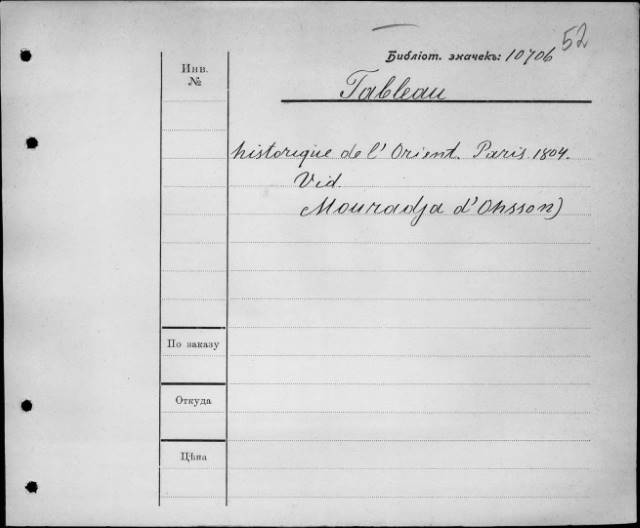 52
Библіот. значекъ: 10706
Инв.
№
Tableau
historique de l'Orient. Paris 1804.
Vid.
Mouradja d'Ohsson)
По заказу
Откуда
Цѣна